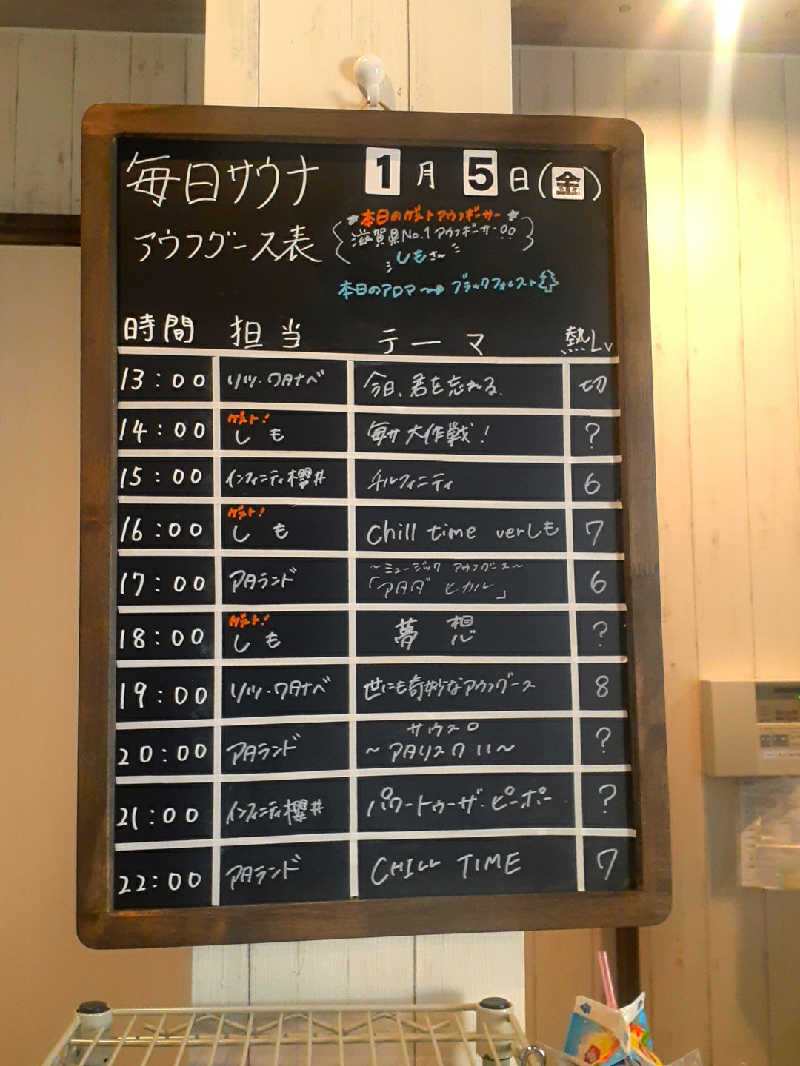 毎日サウナ 1月5日(金)
アウフグース表
本日のゲストアウフギーサー
滋賀県No.1アウフギーサー
しもさん
本日のアロマ→ブラックフォレスト
時間 担当 テーマ 熱Lv
13:00 リツ・ワタナベ 今日、君を忘れる 切
ゲスト!
14:00 しも 毎サ大作戦! ?
15:00 インフィニティ櫻井 チルフィニティ 6
ゲスト!
16:00 しも Chill time verしも 7
~ミュージックアウフグース~
17:00 アタランド 「アタダ ヒカル」 6
ゲスト!
18:00 しも 夢想 ?
19:00 リツ・ワタナベ 世にも奇妙なアウフグース 8
サウスプロ
20:00 アタランド ?
21:00 インフィニティ櫻井 パワートゥーザ・ピーポー ?
22:00 アタランド CHILL TIME 7